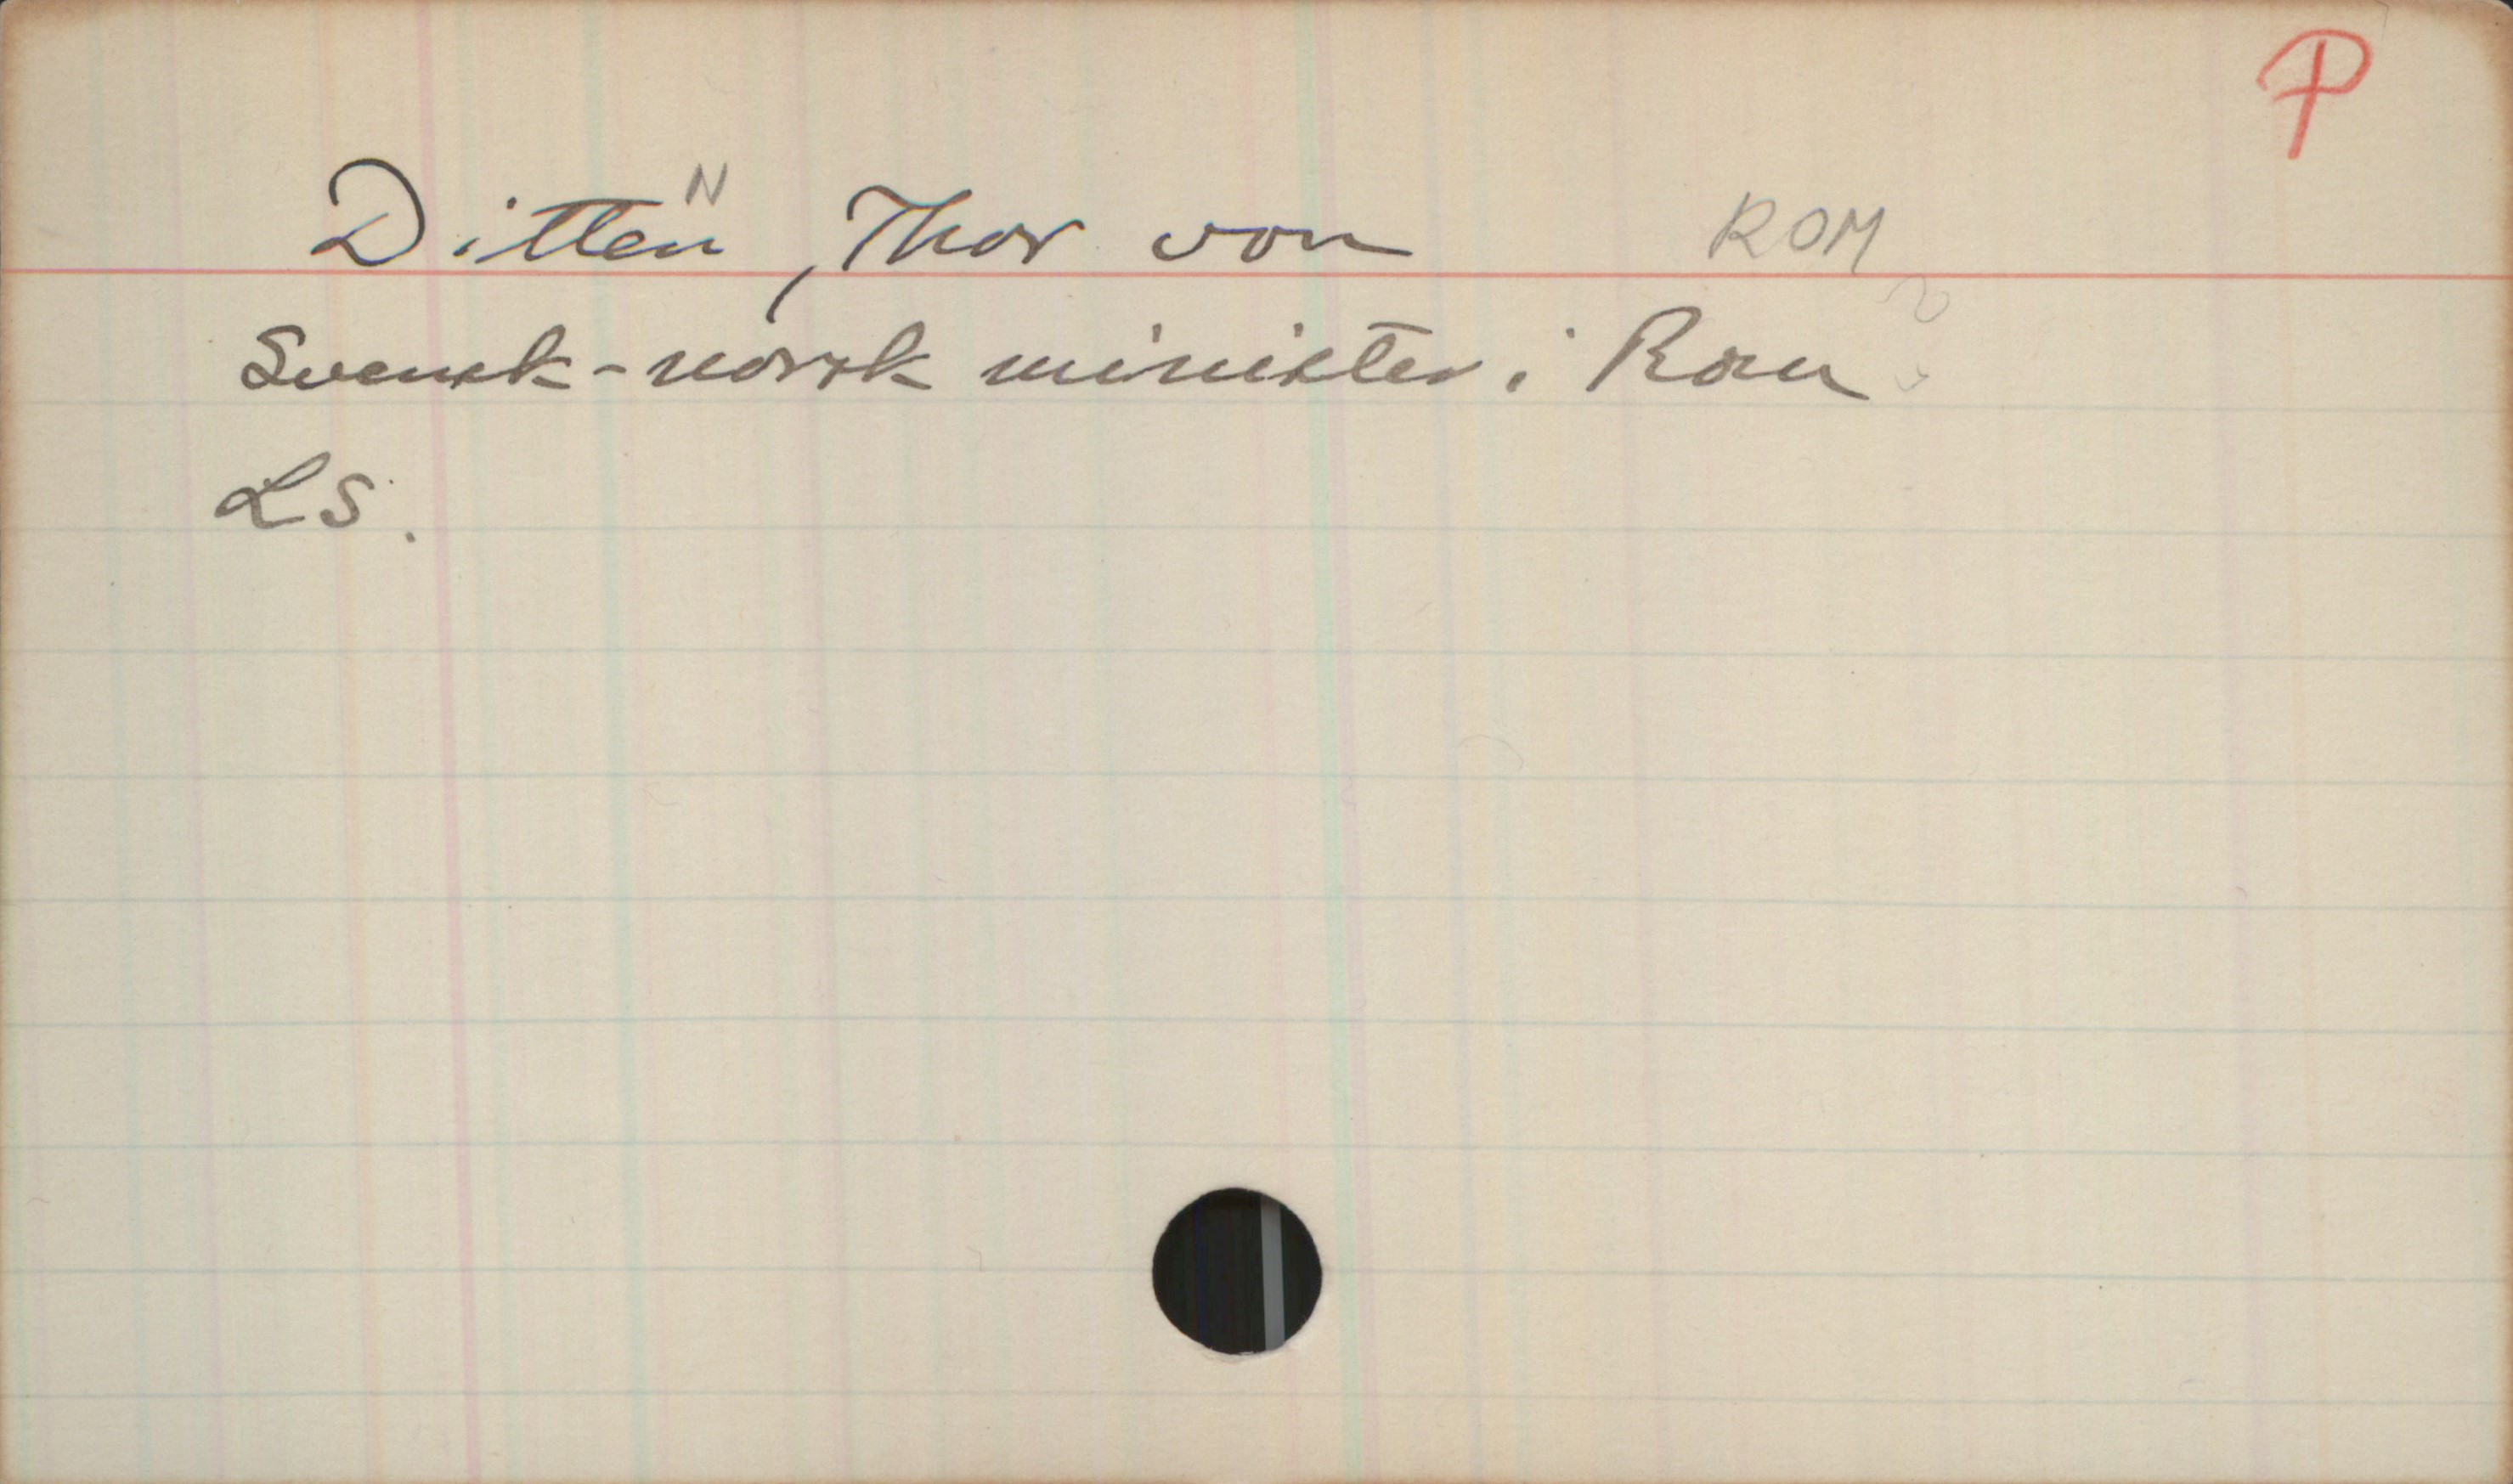 P
Ditten, Thor von N ROM
Svensk-norsk minister i Rom
LS.